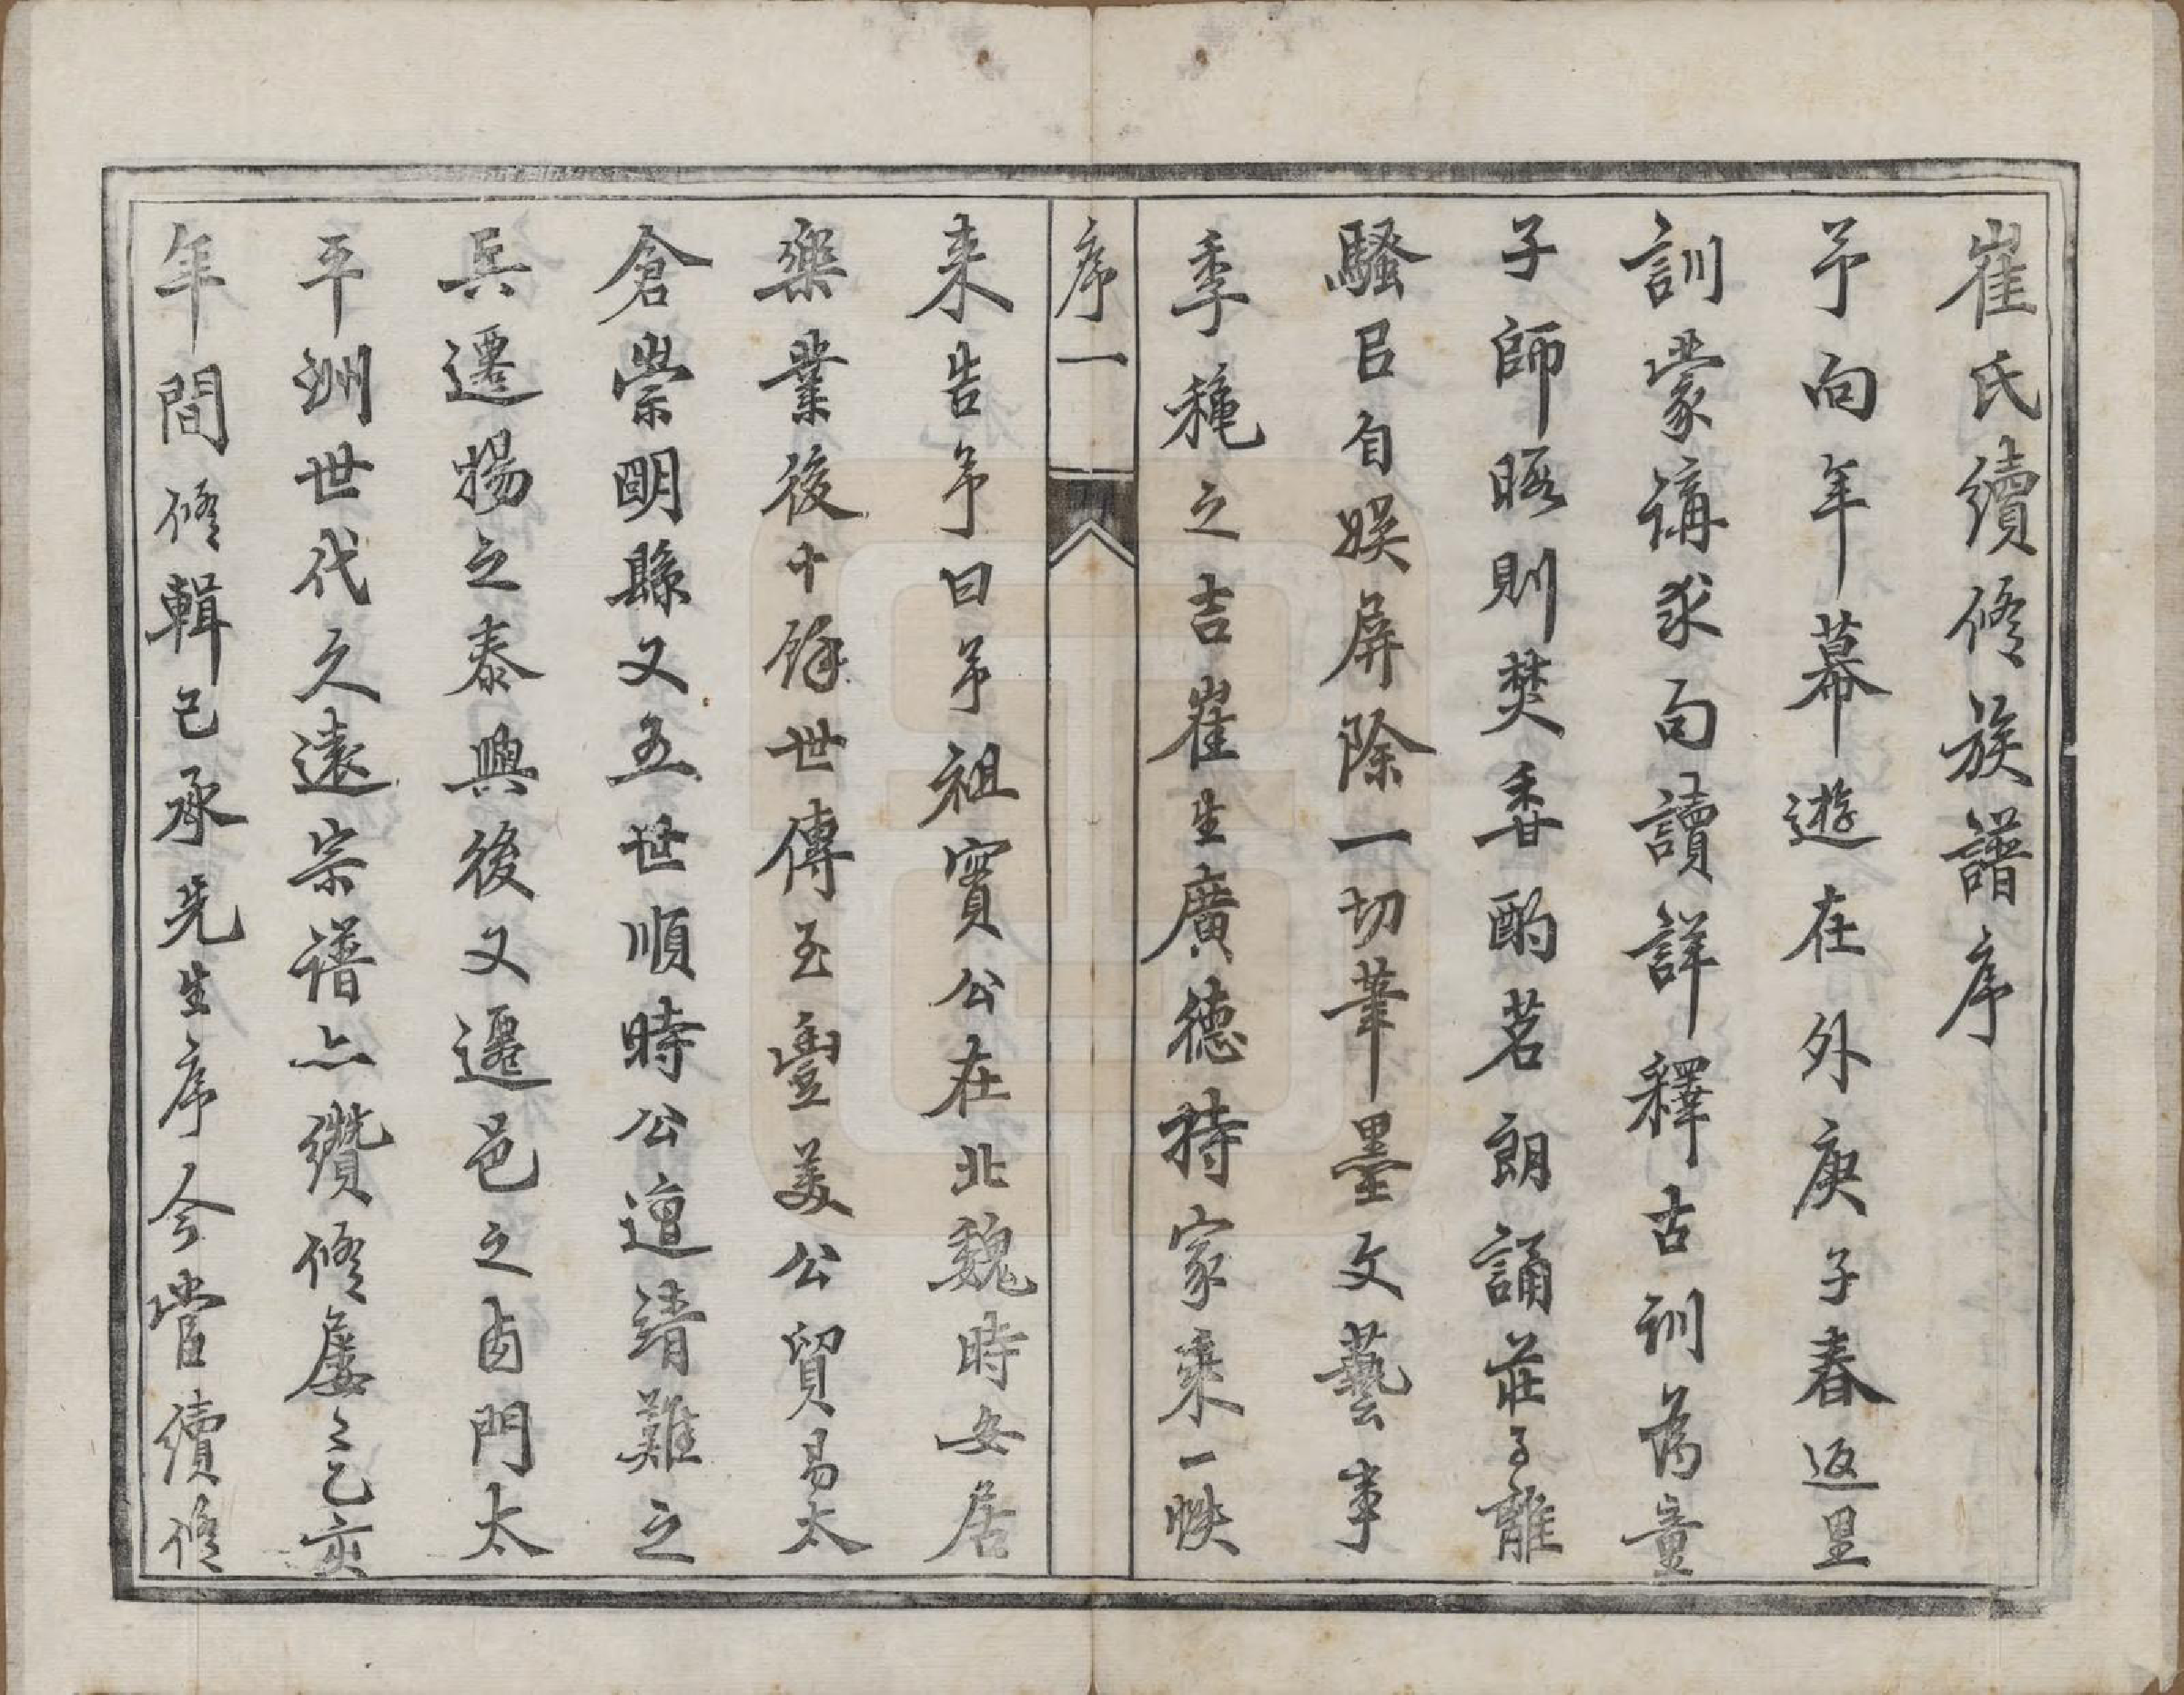 崔氏續修族譜序
予向年幕遊在外庚子春返里
訓蒙講求句讀詳釋古訓為童
子師暇則焚香酌茗朗誦莊子離
騷㠯自娛屏除一切筆墨文藝事
季穐之吉崔生廣德持家乘一帙
序一
来告予曰予祖實公在北魏時安居
樂業後十餘世傳至豐美公貿易太
倉崇明縣又五世順時公遭靖難之
兵遷揚之泰興後又遷邑之卤門太
平洲世代久遠宗譜亦纘修屡〻乙亥
年間修輯已承先生序今當續修